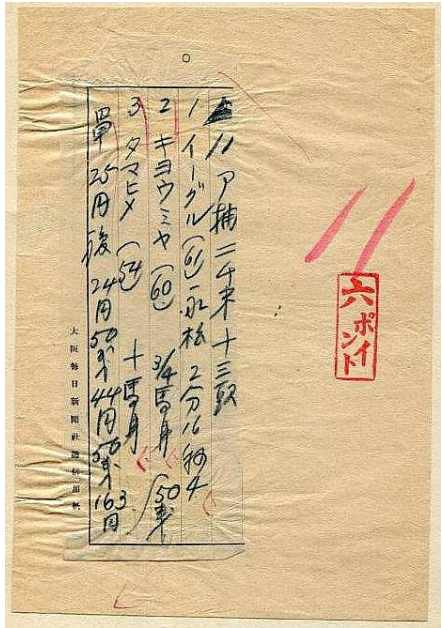 11
六ポイント
11 ア抽 二千米 十三頭
1 イーグル (61) 永松 2分16秒4
2 キヨウミヤ (60) 3/4馬身
3 タマヒメ (54) 十馬身
単 25円 複 24円50銭 44円50銭 163円
50銭
大阪毎日新聞社通信用紙